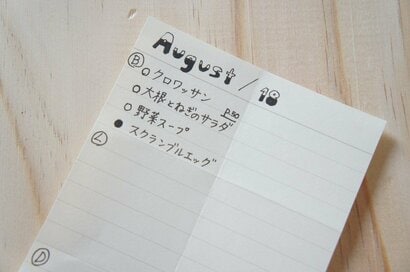 August / 18
Ⓑ ○ クロワッサン
○ 大根とねぎのサラダ P.50
○ 野菜スープ
● スクランブルエッグ
Ⓛ
Ⓓ